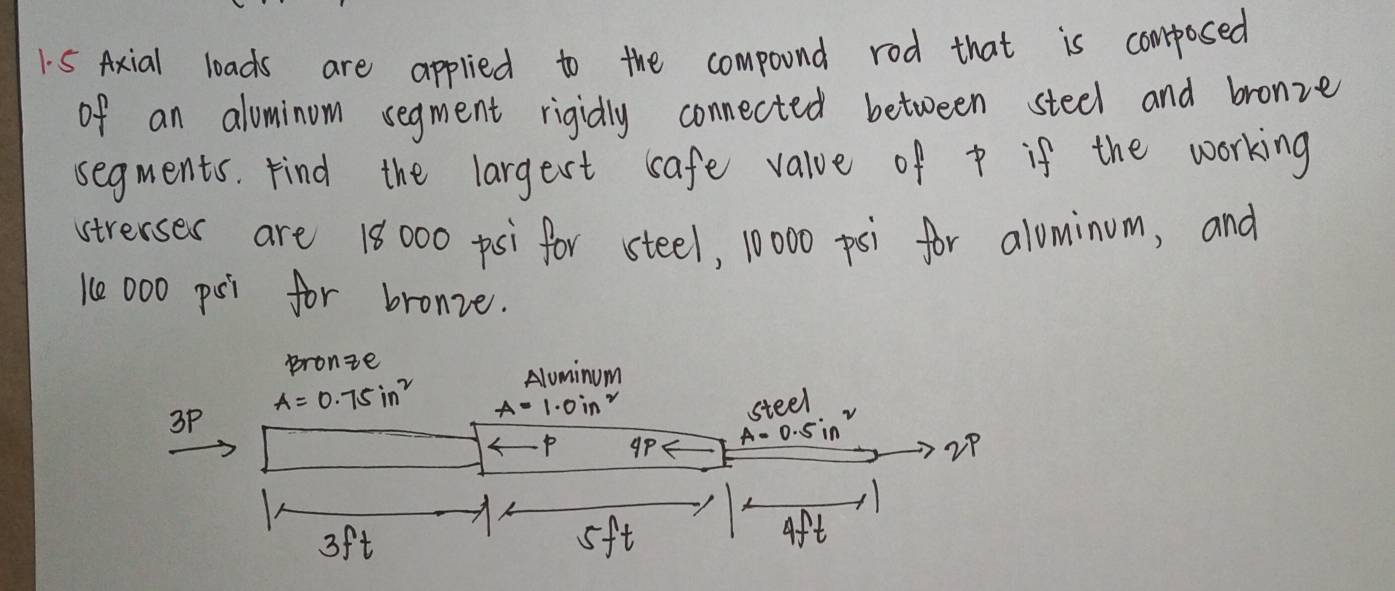 1.5 Axial loads are applied to the compound rod that is composed
of an aluminum segment rigidly connected between steel and bronze
segments. Find the largest safe value of P if the working
stresses are 18 000 psi for steel, 10 000 psi for aluminum, and
16 000 psi for bronze.
Bronze
A = 0.75 in²
Aluminum
A = 1.0 in²
steel
A = 0.5 in²
3P
P
4P
2P
3ft
5ft
4ft